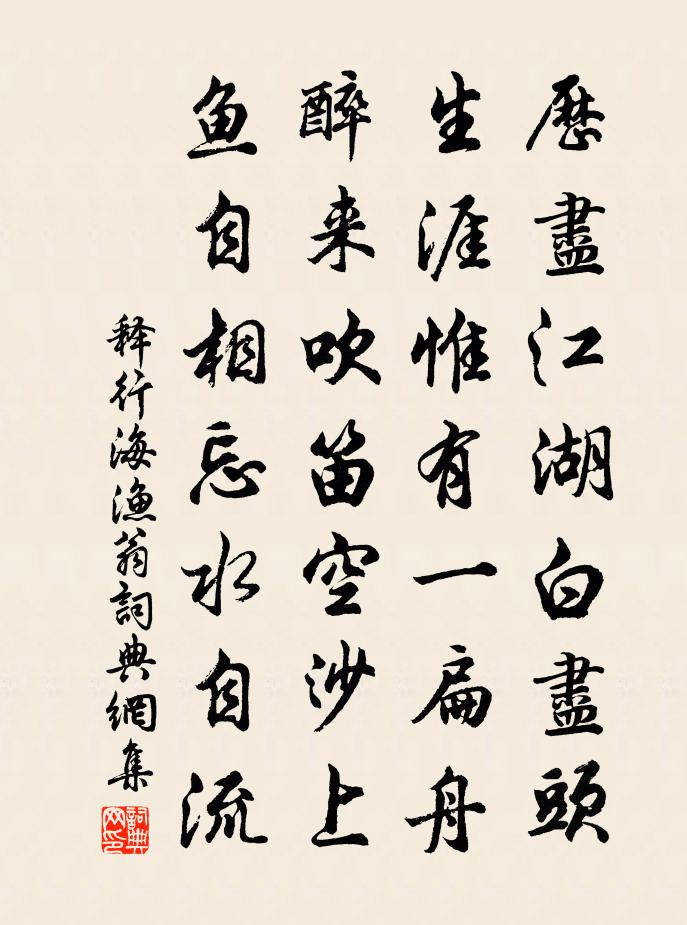 歷盡江湖白盡頭
生涯惟有一扁舟
醉来吹笛空沙上
鱼自相忘水自流
释行海漁翁詞典網集
詞典网印